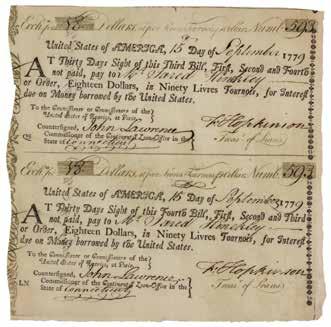 Exch. for 18 Dollars, Livres Tournois Numb. 593
United States of AMERICA, 15 Day of September 1779
AT Thirty Days Sight of this Third Bill, First, Second and Fourth
not paid, pay to Mr Jared Hinckley
or Order, Eighteen Dollars, in Ninety Livres Tournois, for Interest
due on Money borrowed by the United States.
To the Commissioner or Commissioners of the
United States of America, at Paris.
Countersigned, John Lawrence
Commissioner of the Continental Loan-Office in the
State of Connecticut
F Hopkinson
Treasr of Loans
Exch. for 18 Dollars, Livres Tournois Numb. 593
United States of AMERICA, 15 Day of September 1779
AT Thirty Days Sight of this Fourth Bill, First, Second and Third
not paid, pay to Mr Jared Hinckley
or Order, Eighteen Dollars, in Ninety Livres Tournois, for Interest
due on Money borrowed by the United States.
To the Commissioner or Commissioners of the
United States of America, at Paris.
Countersigned, John Lawrence
LN Commissioner of the Continental Loan-Office in the
State of Connecticut
F Hopkinson
Treasr of Loans